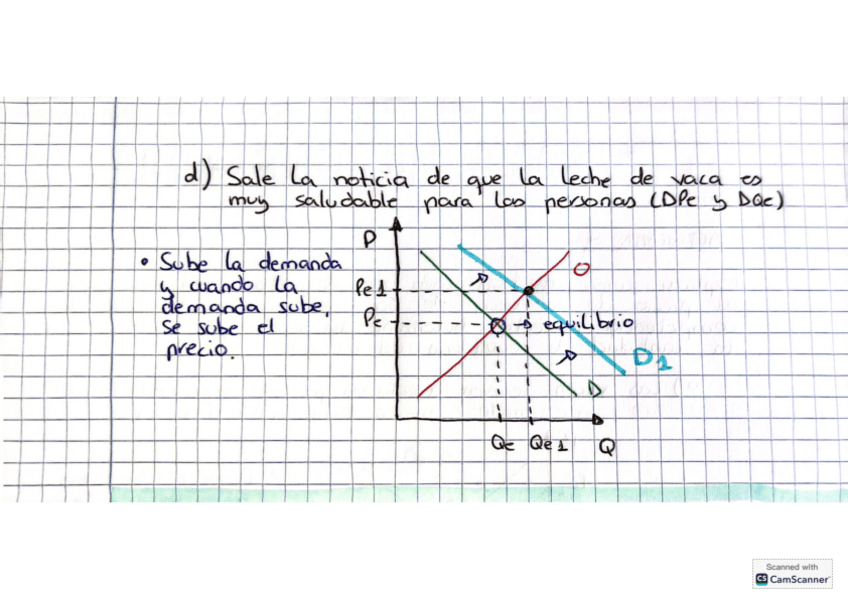 d) Sale la noticia de que la leche de vaca es
muy saludable para las personas (DPe y DQe)
• Sube la demanda
y cuando la
demanda sube,
se sube el
precio.
P
O
Pe1
Pe
→ equilibrio
D1
D
Qe Qe1 Q
Scanned with
CS CamScanner